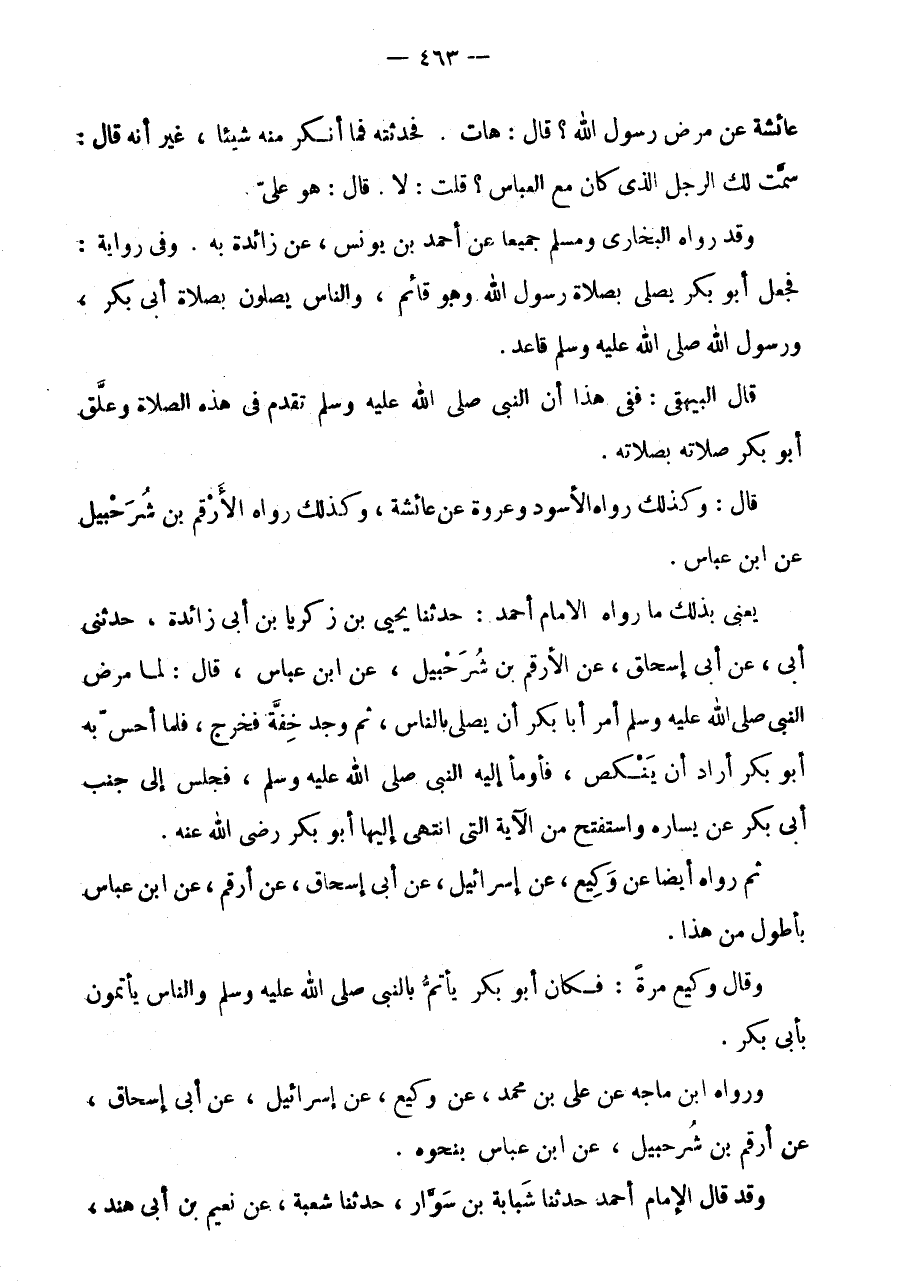 — ٤٦٣ —
عائشة عن مرض رسول الله ؟ قال : هات . فحدثته فما أنكر منه شيئا ، غير أنه قال :
سمَّت لك الرجل الذى كان مع العباس ؟ قلت : لا . قال : هو علىّ .
وقد رواه البخارى ومسلم جميعا عن أحمد بن يونس ، عن زائدة به . وفى رواية :
فجعل أبو بكر يصلى بصلاة رسول الله وهو قائم ، والناس يصلون بصلاة أبى بكر ،
ورسول الله صلى الله عليه وسلم قاعد .
قال البيهقى : ففى هذا أن النبى صلى الله عليه وسلم تقدم فى هذه الصلاة وعلَّق
أبو بكر صلاته بصلاته .
قال : وكذلك رواه الأسود وعروة عن عائشة ، وكذلك رواه الأَرْقم بن شُرَحْبيل
عن ابن عباس .
يعنى بذلك ما رواه الامام أحمد : حدثنا يحيى بن زكريا بن أبى زائدة ، حدثنى
أبى ، عن أبى إسحاق ، عن الأرقم بن شُرَحْبيل ، عن ابن عباس ، قال : لما مرض
النبى صلى الله عليه وسلم أمر أبا بكر أن يصلى بالناس ، ثم وجد خِفَّة فخرج ، فلما أحسّ به
أبو بكر أراد أن يَنْكص ، فأومأ إليه النبى صلى الله عليه وسلم ، فجلس إلى جنب
أبى بكر عن يساره واستفتح من الآية التى انتهى إليها أبو بكر رضى الله عنه .
ثم رواه أيضا عن وَكِيع ، عن إسرائيل ، عن أبى إسحاق ، عن أرقم ، عن ابن عباس
بأطول من هذا .
وقال وكيع مرةً : فكان أبو بكر يأتمُّ بالنبى صلى الله عليه وسلم والناس يأتمون
بأبى بكر .
ورواه ابن ماجه عن على بن محمد ، عن وكيع ، عن إسرائيل ، عن أبى إسحاق ،
عن أرقم بن شُرحبيل ، عن ابن عباس بنحوه .
وقد قال الإمام أحمد حدثنا شَبابة بن سَوَّار ، حدثنا شعبة ، عن نعيم بن أبى هند ،